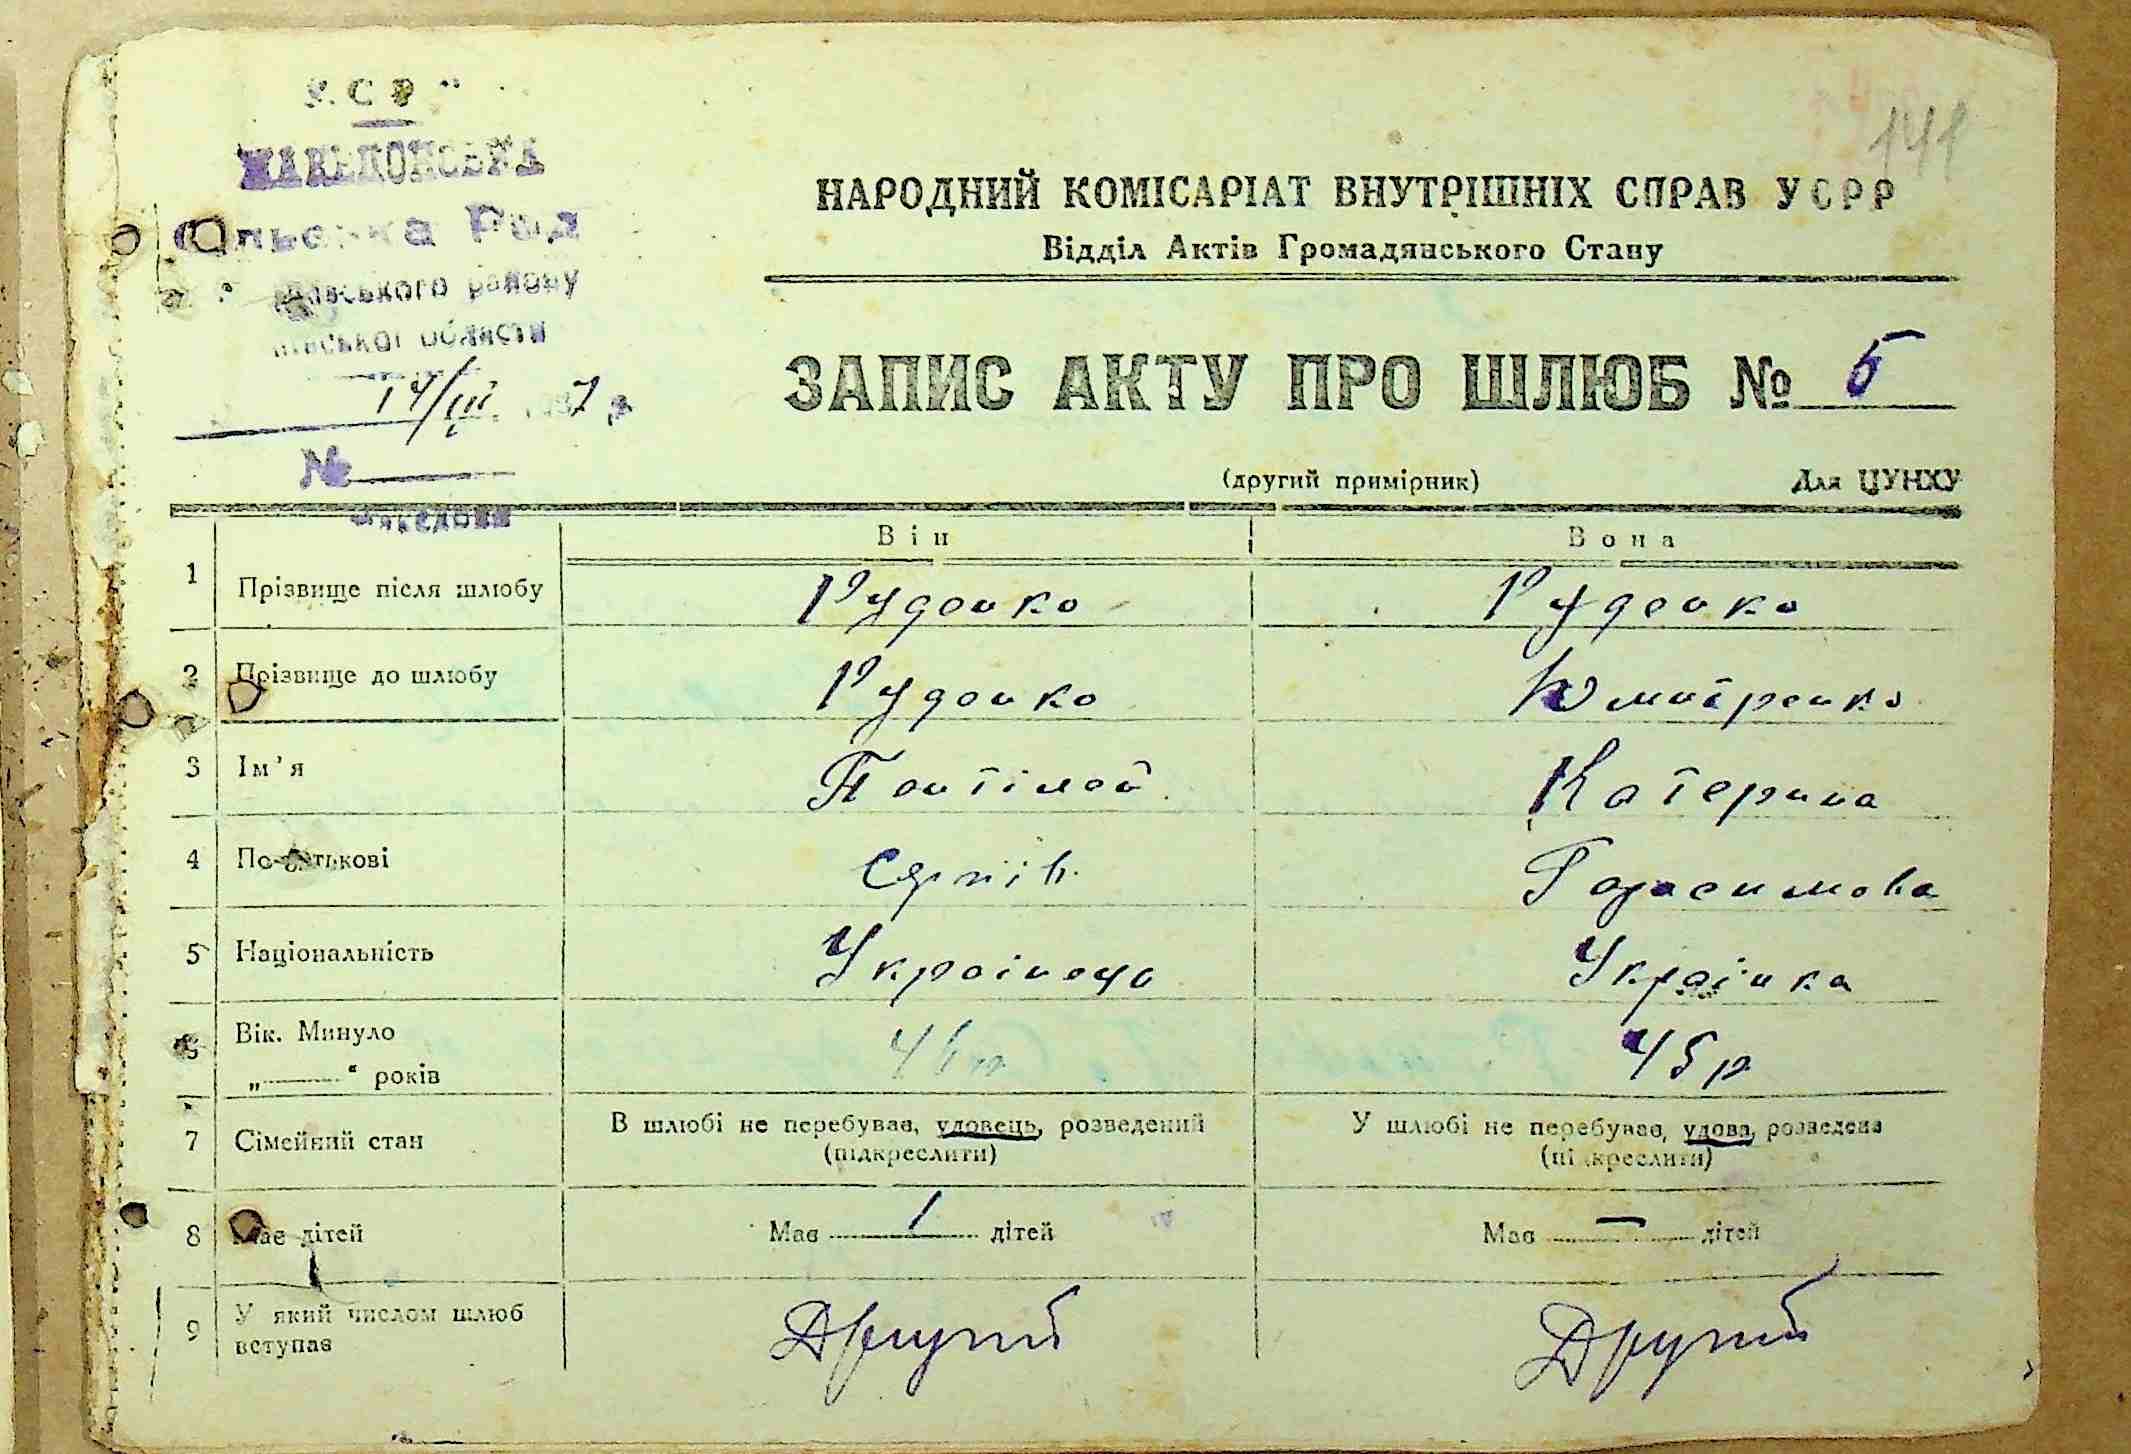 141
У.С.Р.Р.
МАКЕДОНСЬКА
Сільська Рада
району
області
14/III 1937 р.
№
НАРОДНИЙ КОМІСАРІАТ ВНУТРІШНІХ СПРАВ УСРР
Відділ Актів Громадянського Стану
ЗАПИС АКТУ ПРО ШЛЮБ № 5
(другий примірник) Для ЦУНХУ
Він Вона
1 Прізвище після шлюбу Руденко Руденко
2 Прізвище до шлюбу Руденко
3 Ім'я Катерина
4 По батькові Сергіїв. Герасимова
5 Національність Українець Українка
6 Вік. Минуло
„———“ років 45 р
7 Сімейний стан В шлюбі не перебував, удовець, розведений У шлюбі не перебуває, удова, розведена
(підкреслити) (підкреслити)
8 Має дітей Має 1 дітей Має — дітей
9 У який числом шлюб
вступає Другий Другий